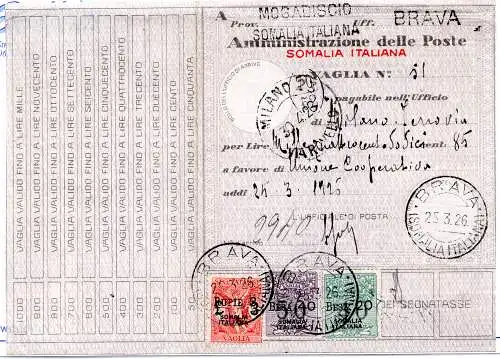 MOGADISCIO
SOMALIA ITALIANA
BRAVA
A
Prov.
Uff.
Amministrazione delle Poste
SOMALIA ITALIANA
VAGLIA N° 51
pagabile nell'Ufficio
di Milano Ferrovia
per Lire cent. 85
a favore di Unione Cooperativa
addì 25 3 1926
L'UFFICIALE DI POSTA
MILANO
BRAVA
25.3.26
(SOMALIA ITALIANA)
BRAVA
BRAVA
RUPIE 3
SOMALIA
ITALIANA
VAGLIA
BESE
SOMALIA
ITALIANA
BESE 20
SOMALIA
ITALIANA
SEGNATASSE
VAGLIA VALIDO FINO A LIRE MILLE
VAGLIA VALIDO FINO A LIRE NOVECENTO
VAGLIA VALIDO FINO A LIRE OTTOCENTO
VAGLIA VALIDO FINO A LIRE SETTECENTO
VAGLIA VALIDO FINO A LIRE SEICENTO
VAGLIA VALIDO FINO A LIRE CINQUECENTO
VAGLIA VALIDO FINO A LIRE QUATTROCENTO
VAGLIA VALIDO FINO A LIRE TRECENTO
VAGLIA VALIDO FINO A LIRE DUECENTO
VAGLIA VALIDO FINO A LIRE CENTO
VAGLIA VALIDO FINO A LIRE CINQUANTA
1000
900
800
700
600
500
400
300
200
100
50